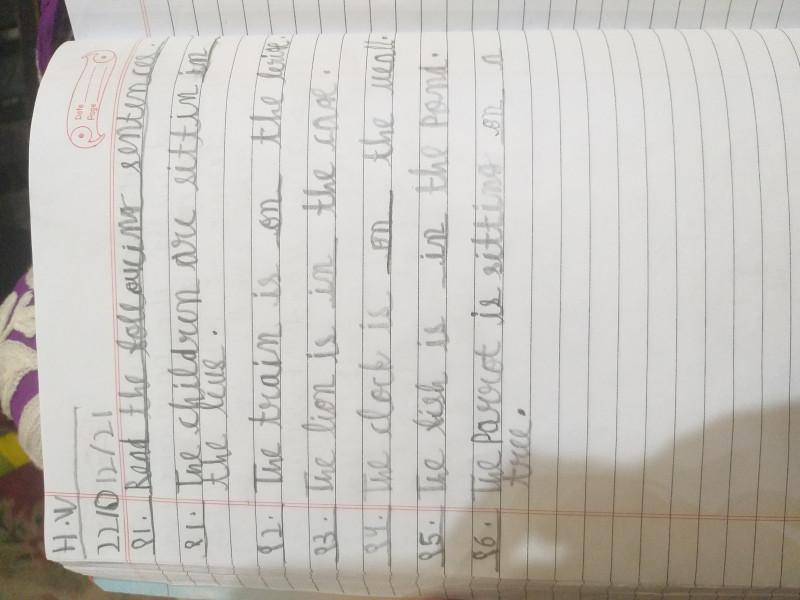 H.W
Date
Page
22/12/21
Q1. Read the following sentences.
Q1. The children are sittin in
the bus.
Q2. The train is on the bridge.
Q3. The lion is in the cage.
Q4. The clock is on the wall.
Q5. The fish is in the pond.
Q6. The Parrot is sitting on a
tree.